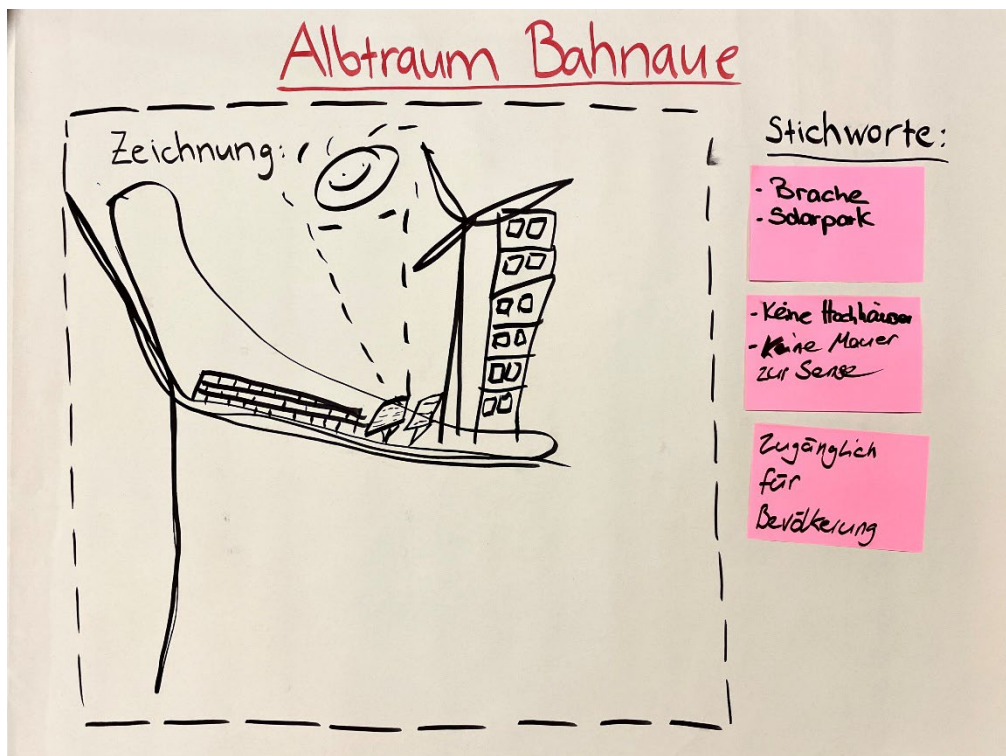 Albtraum Bahnaue
Zeichnung:
Stichworte:
- Brache
- Solarpark
- Keine Hochhäuser
- Keine Mauer
zur Sense
Zugänglich
für
Bevölkerung